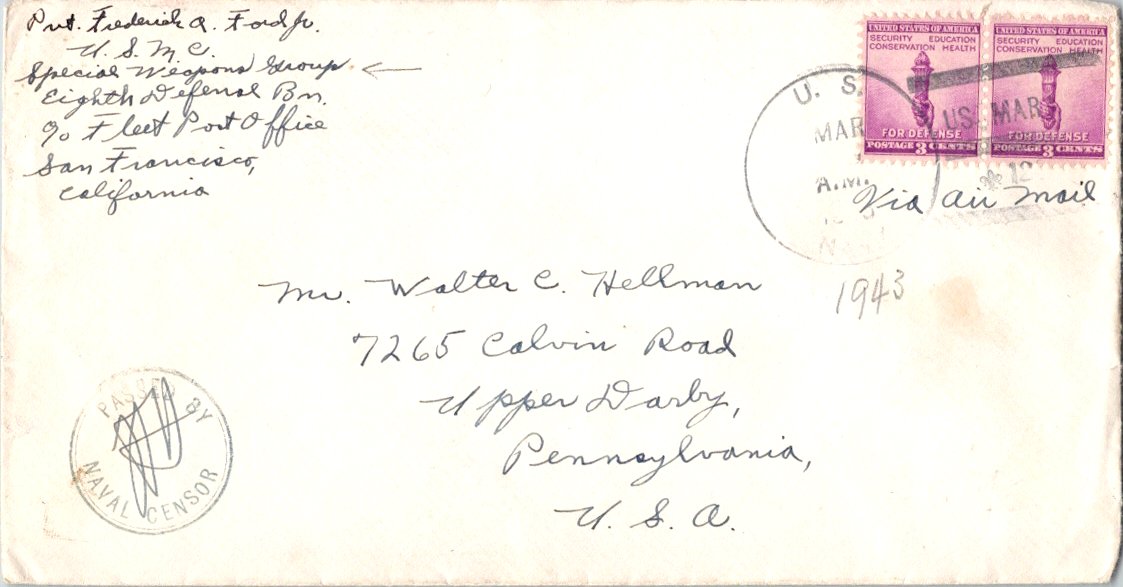 Pvt. Frederick A. Ford Jr.
U. S. M. C.
Special Weapons Group
Eighth Defense Bn.
% Fleet Post Office
San Francisco,
California
UNITED STATES OF AMERICA
SECURITY EDUCATION
CONSERVATION HEALTH
FOR DEFENSE
POSTAGE 3 CENTS
UNITED STATES OF AMERICA
SECURITY EDUCATION
CONSERVATION HEALTH
FOR DEFENSE
POSTAGE 3 CENTS
U. S.
MAR
A.M.
U.S. MAR
12
Via Air Mail
1943
Mr. Walter C. Hellman
7265 Calvin Road
Upper Darby,
Pennsylvania,
U. S. A.
PASSED BY
NAVAL CENSOR